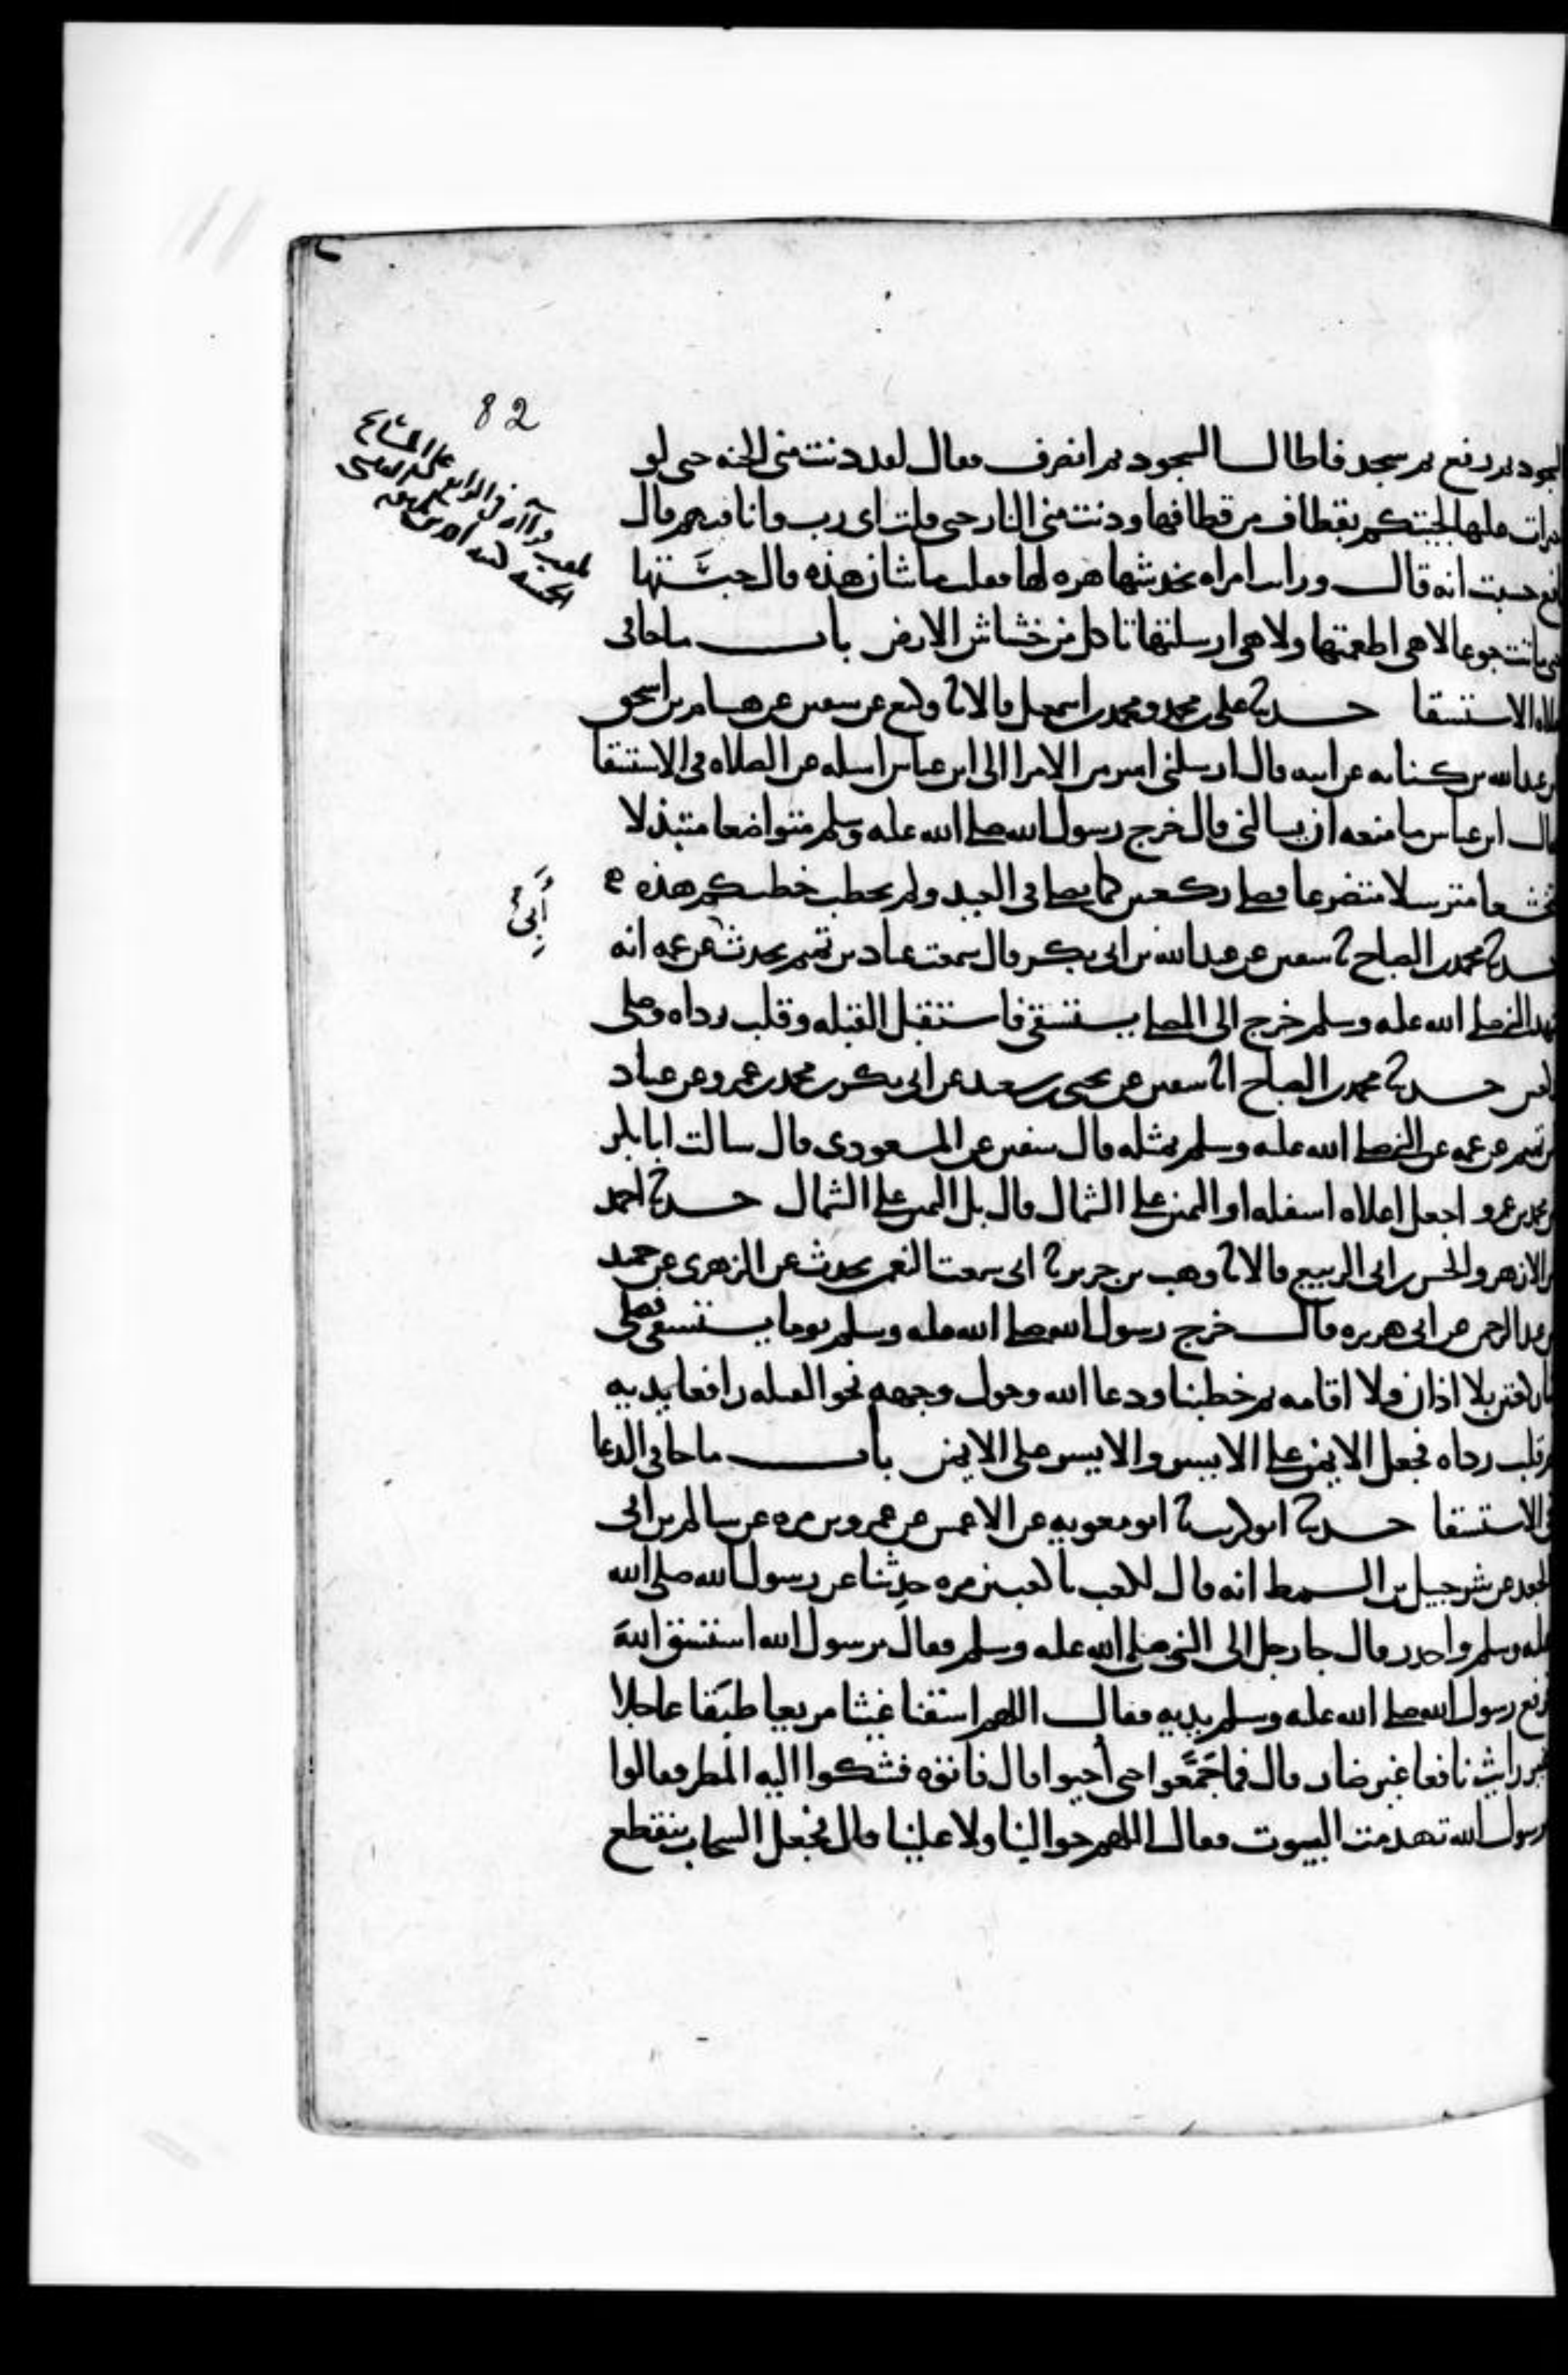 82
السجود ثم رفع ثم سجد فاطال السجود ثم انصرف فقال لقد دنت مني الجنه حتى لو
اجترات عليها لجيتكم بقطاف من قطافها ودنت مني النار حتى قلت اي رب وانا فيهم قال
نافع حسبت انه قال ورايت امراه تخدشها هره لها فقلت ما شان هذه قال حبستها
حتى ماتت جوعا لا هي اطعمتها ولا هي ارسلتها تاكل من خشاش الارض باب ما جا في
صلاه الاستسقا حدثنا علي بن محمد ومحمد بن اسمعيل قالا نا وكيع عن سفين عن هشام بن اسحق
بن عبد الله بن كنانه عن ابيه قال ارسلني امير من الامرا الى ابن عباس اسله عن الصلاه في الاستسقا
فقال ابن عباس ما منعه ان يسالني قال خرج رسول الله صلى الله عليه وسلم متواضعا متبذلا
متخشعا مترسلا متضرعا فصلى ركعتين كما يصلي في العيد ولم يخطب خطبتكم هذه
حدثنا محمد بن الصباح نا سفين عن عبد الله بن ابي بكر قال سمعت عباد بن تميم يحدث عن عمه انه
أبي
شهد النبي صلى الله عليه وسلم خرج الى المصلى يستسقي فاستقبل القبله وقلب رداه وصلى
ركعتين حدثنا محمد بن الصباح انا سفين عن يحيى بن سعيد عن ابي بكر بن محمد بن عمرو عن عباد
بن تميم عن عمه عن النبي صلى الله عليه وسلم بمثله قال سفين عن المسعودي قال سالت ابا بكر
بن محمد بن عمرو اجعل اعلاه اسفله او اليمين على الشمال قال بل اليمين على الشمال حدثنا احمد
بن الازهر والحسن بن ابي الربيع قالا نا وهب بن جرير نا ابي سمعت النعمن يحدث عن الزهري عن حميد
بن عبد الرحمن عن ابي هريره قال خرج رسول الله صلى الله عليه وسلم يوما يستسقي فصلى
بنا ركعتين بلا اذان ولا اقامه ثم خطبنا ودعا الله وحول وجهه نحو القبله رافعا يديه
ثم قلب رداه فجعل الايمن على الايسر والايسر على الايمن باب ما جا في الدعا
في الاستسقا حدثنا ابو كريب نا ابو معويه عن الاعمش عن عمرو بن مره عن سالم بن ابي
الجعد عن شرحبيل بن السمط انه قال لكعب يا كعب بن مره حدثنا عن رسول الله صلى الله
عليه وسلم واحذر قال جا رجل الى النبي صلى الله عليه وسلم فقال يرسول الله استسق الله
فرفع رسول الله صلى الله عليه وسلم يديه فقال اللهم اسقنا غيثا مريعا طبقا عاجلا
غير رايث نافعا غير ضار قال فما جمعوا حتى أحيوا قال فاتوه فشكوا اليه المطر فقالوا
يرسول الله تهدمت البيوت فقال اللهم حوالينا ولا علينا قال فجعل السحاب ينقطع